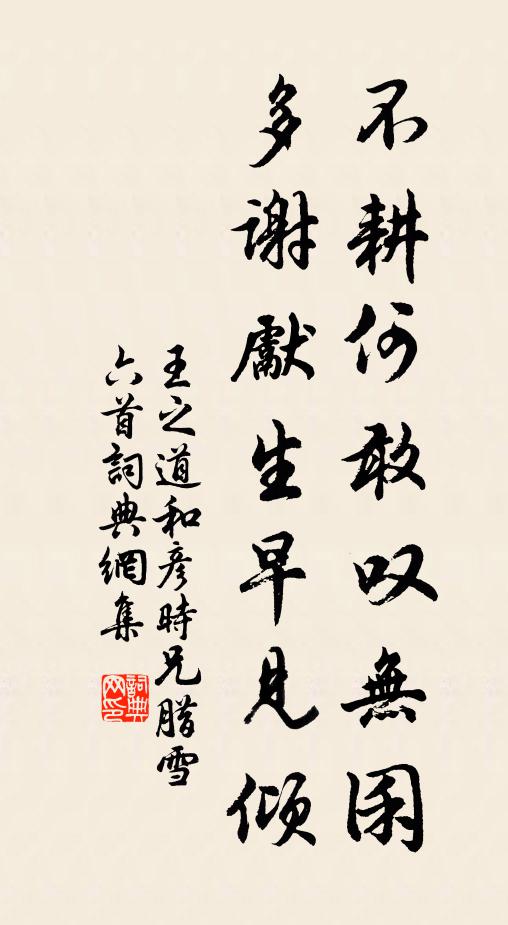 不耕何敢叹無囷
多謝獻生早見傾
王之道和彥時兄腊雪
六首詞典網集
詞典
网印